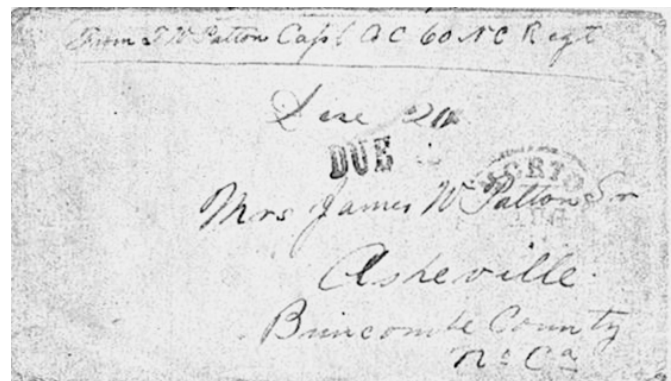 From T. W. Patton Capt Co C 60 NC Regt
Due 20
DUE
Mrs James W. Patton Sr
Asheville
Buncombe County
No Ca